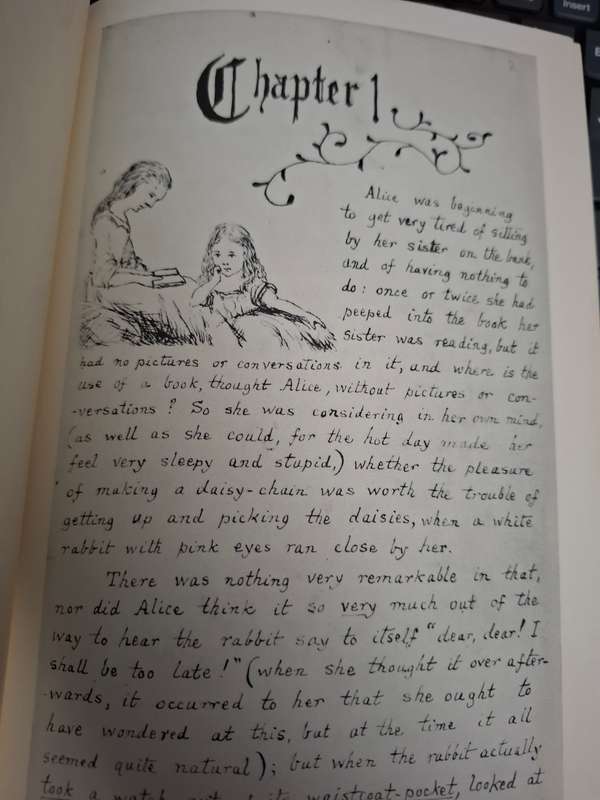 Chapter 1
Alice was beginning
to get very tired of sitting
by her sister on the bank,
and of having nothing to
do: once or twice she had
peeped into the book her
sister was reading, but it
had no pictures or conversations in it, and where is the
use of a book, thought Alice, without pictures or con-
-versations? So she was considering in her own mind,
(as well as she could, for the hot day made her
feel very sleepy and stupid,) whether the pleasure
of making a daisy-chain was worth the trouble of
getting up and picking the daisies, when a white
rabbit with pink eyes ran close by her.
There was nothing very remarkable in that,
nor did Alice think it so very much out of the
way to hear the rabbit say to itself "dear, dear! I
shall be too late!" (when she thought it over after-
-wards, it occurred to her that she ought to
have wondered at this, but at the time it all
seemed quite natural); but when the rabbit actually
took a watch out of its waistcoat-pocket, looked at
Insert